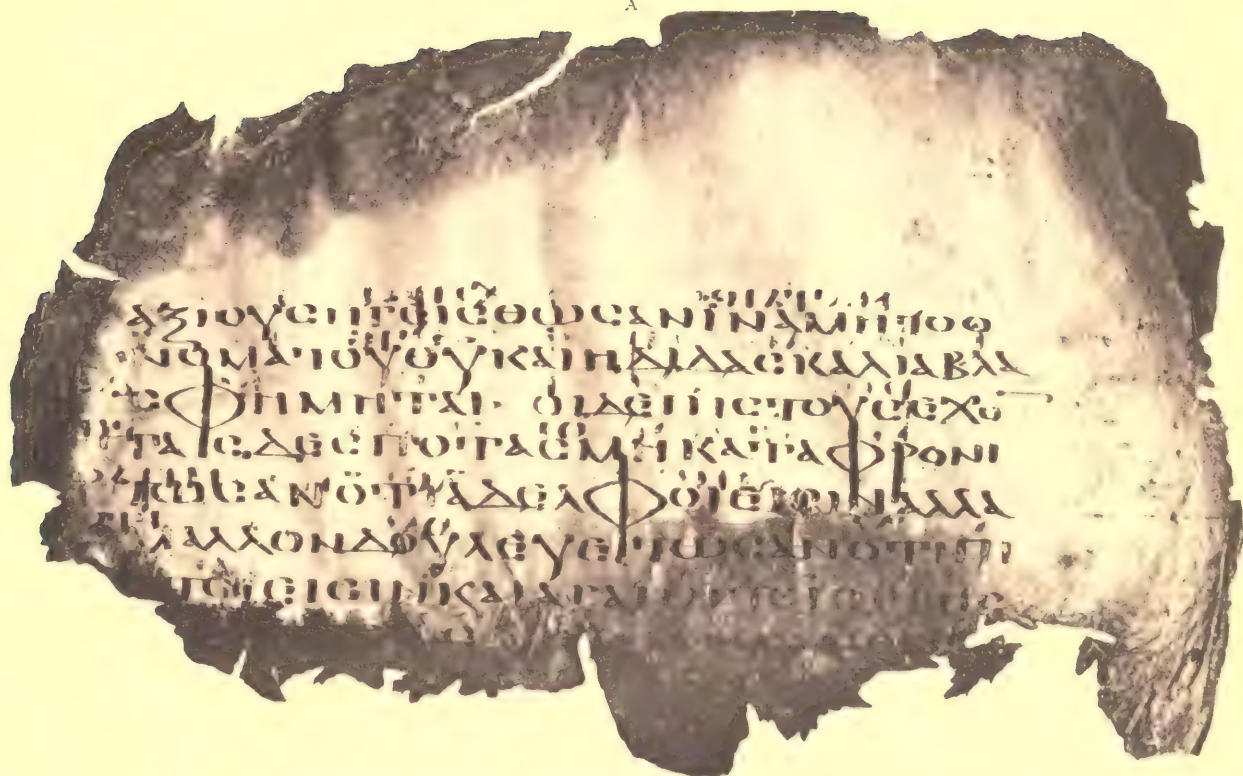 A
ΑΞΙΟΥϹΗΓΕΙϹΘΩϹΑΝΙΝΑΜΗΤΟΟ
ΝΟΜΑΤΟΥΘΥΚΑΙΗΔΙΔΑϹΚΑΛΙΑΒΛΑ
ϹΦΗΜΗΤΑΙ· ΟΙΔΕΠΙϹΤΟΥϹΕΧΟ̅
ΤΑϹΔΕϹΠΟΤΑϹΜΗΚΑΤΑΦΡΟΝΙ
ΤΩϹΑΝΟΤΙΑΔΕΛΦΟΙΕΙϹΙΝΑΛΛΑ
ΜΑΛΛΟΝΔΟΥΛΕΥΕΤΩϹΑΝΟΤΙΠΙ
ϹΤΟΙΕΙϹΙΝΚΑΙΑΓΑΠΗΤΟΙ